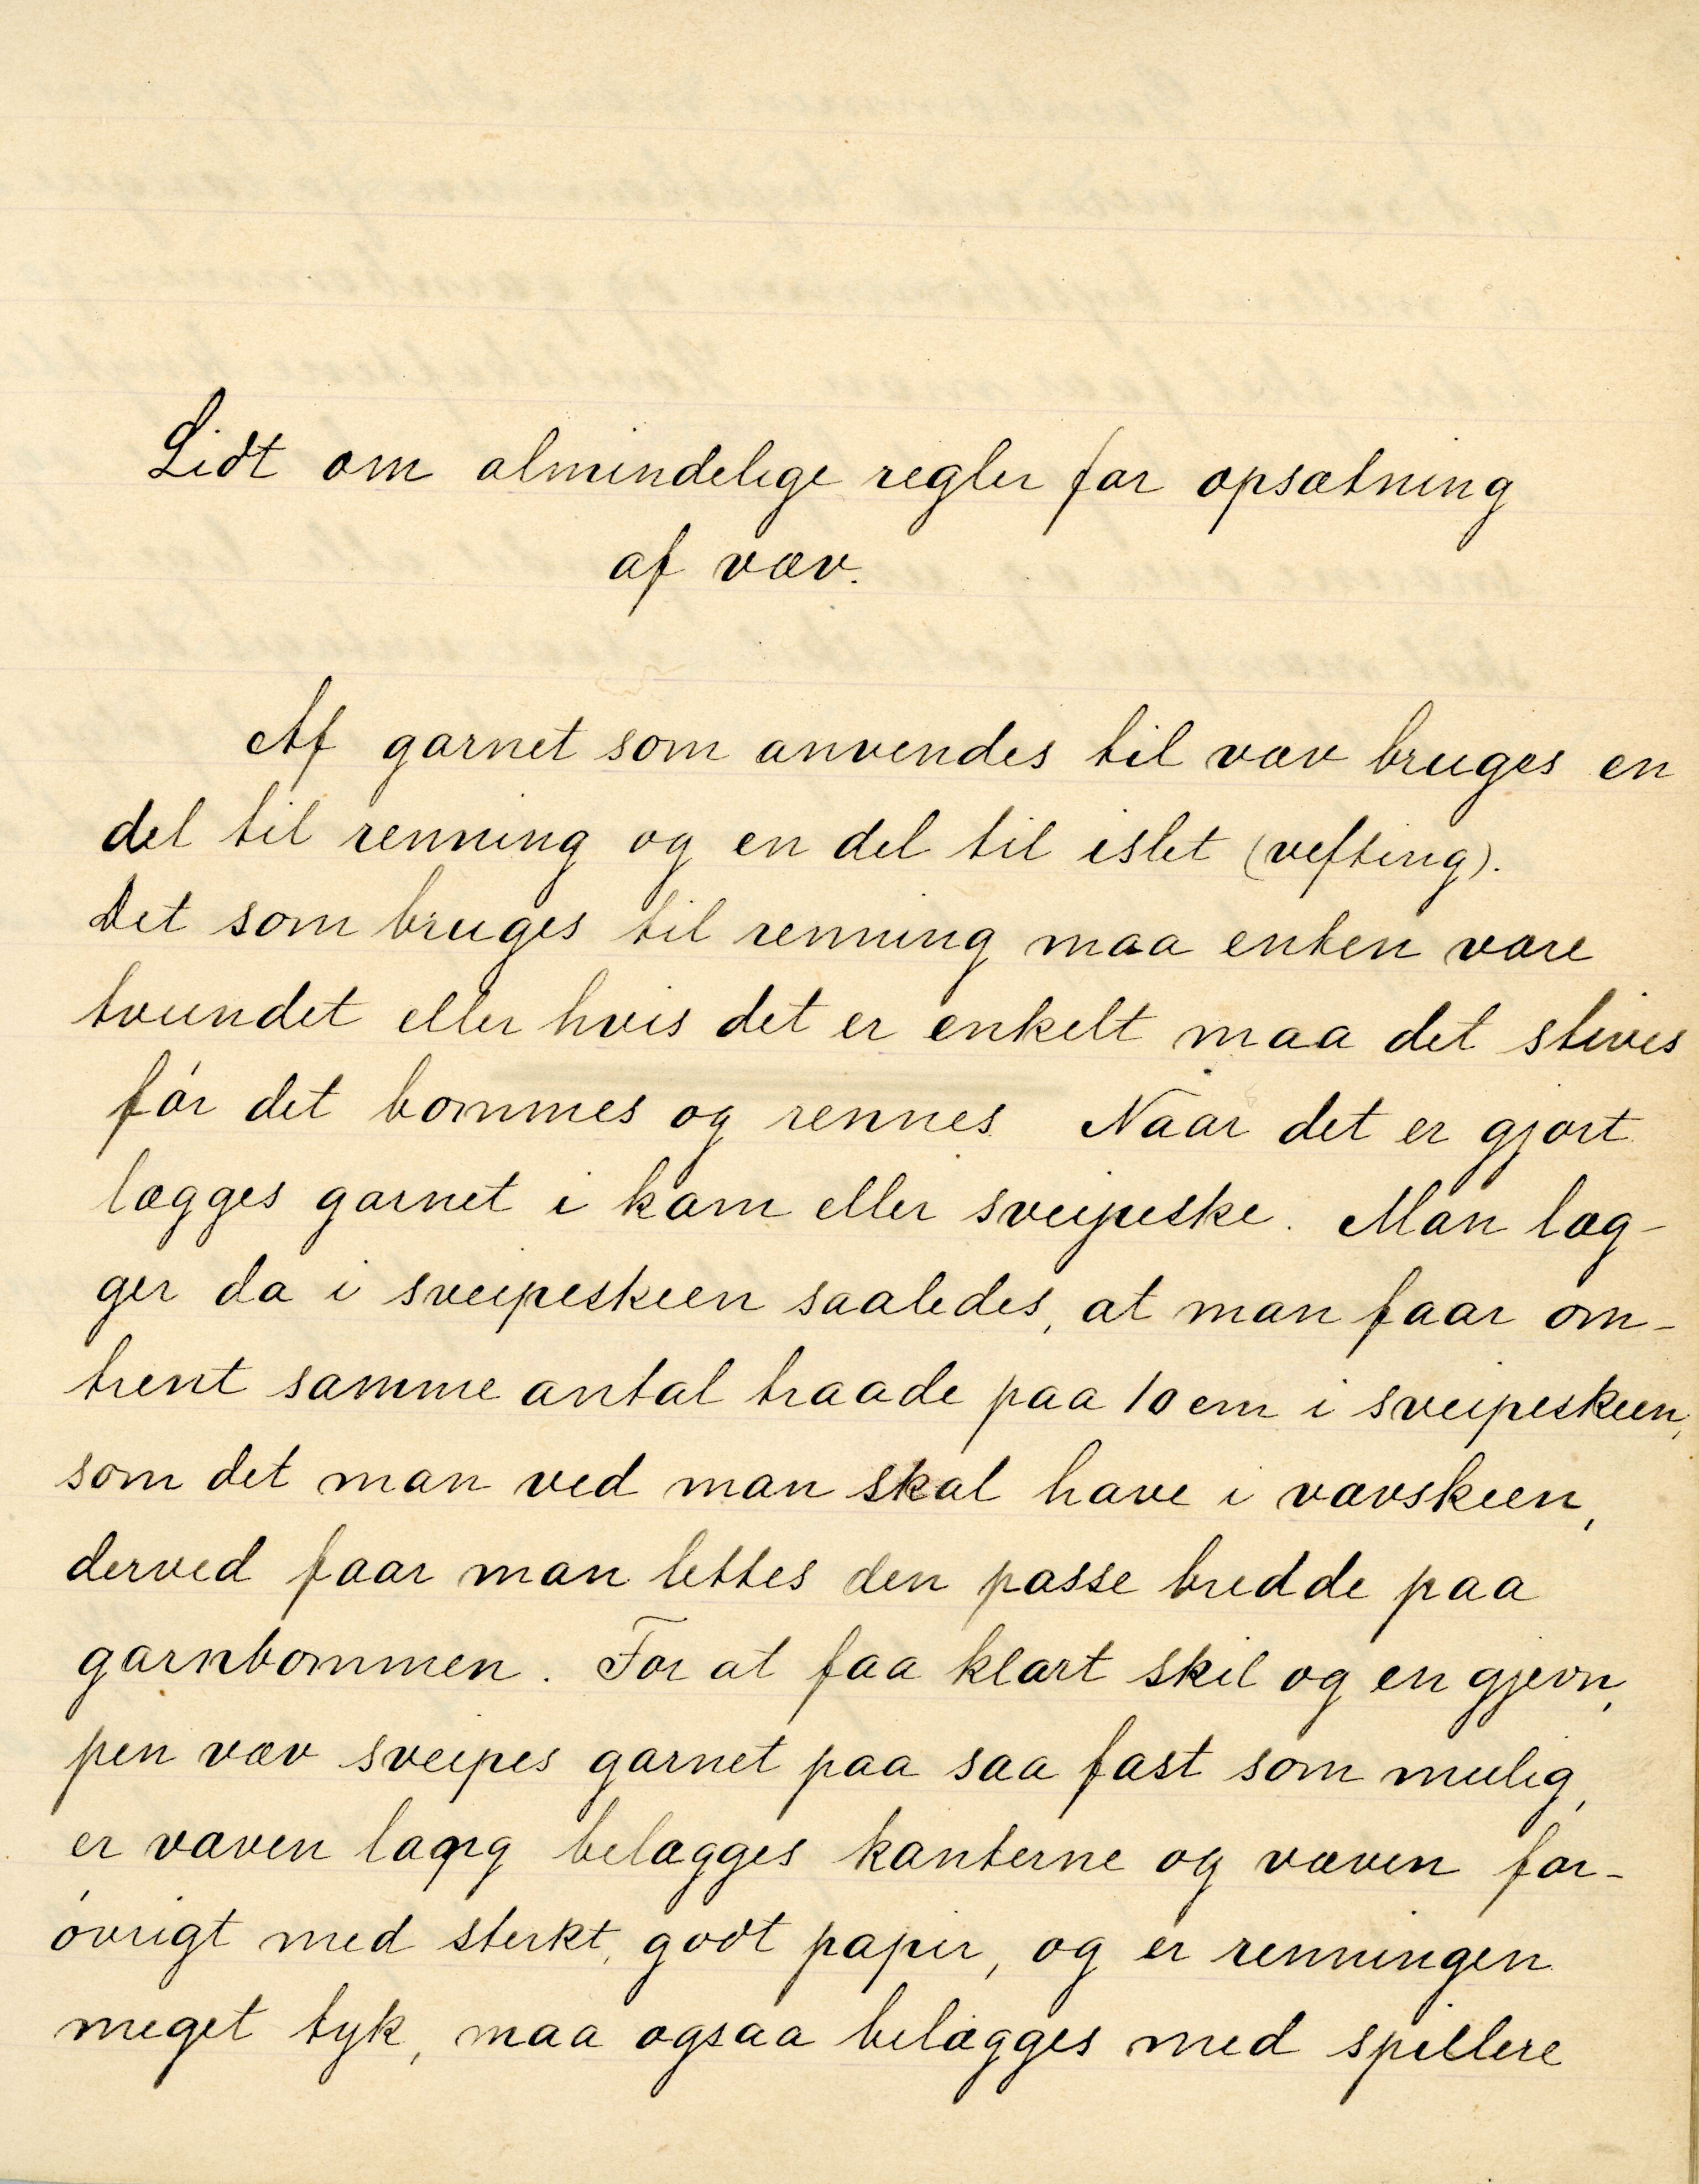 Lidt om almindelige regler for opsætning
af væv.
Af garnet som anvendes til væv bruges en
del til renning og en del til islet (vefting).
Det som bruges til renning maa enten være
tvundet eller hvis det er enkelt maa det stives
før det bommes og rennes. Naar det er gjort
lægges garnet i kam eller sveipeske. Man læg-
ger da i sveipeskeen saaledes, at man faar om-
trent samme antal traade paa 10 cm i sveipeskeen,
som det man ved man skal have i vævskeen,
derved faar man lettes den passe bredde paa
garnbommen. For at faa klart skil og en gjevn,
pen væv sveipes garnet paa saa fast som mulig,
er væven lang belægges kanterne og væven for-
øvrigt med sterkt, godt papir, og er renningen
meget tyk, maa ogsaa belægges med spillere